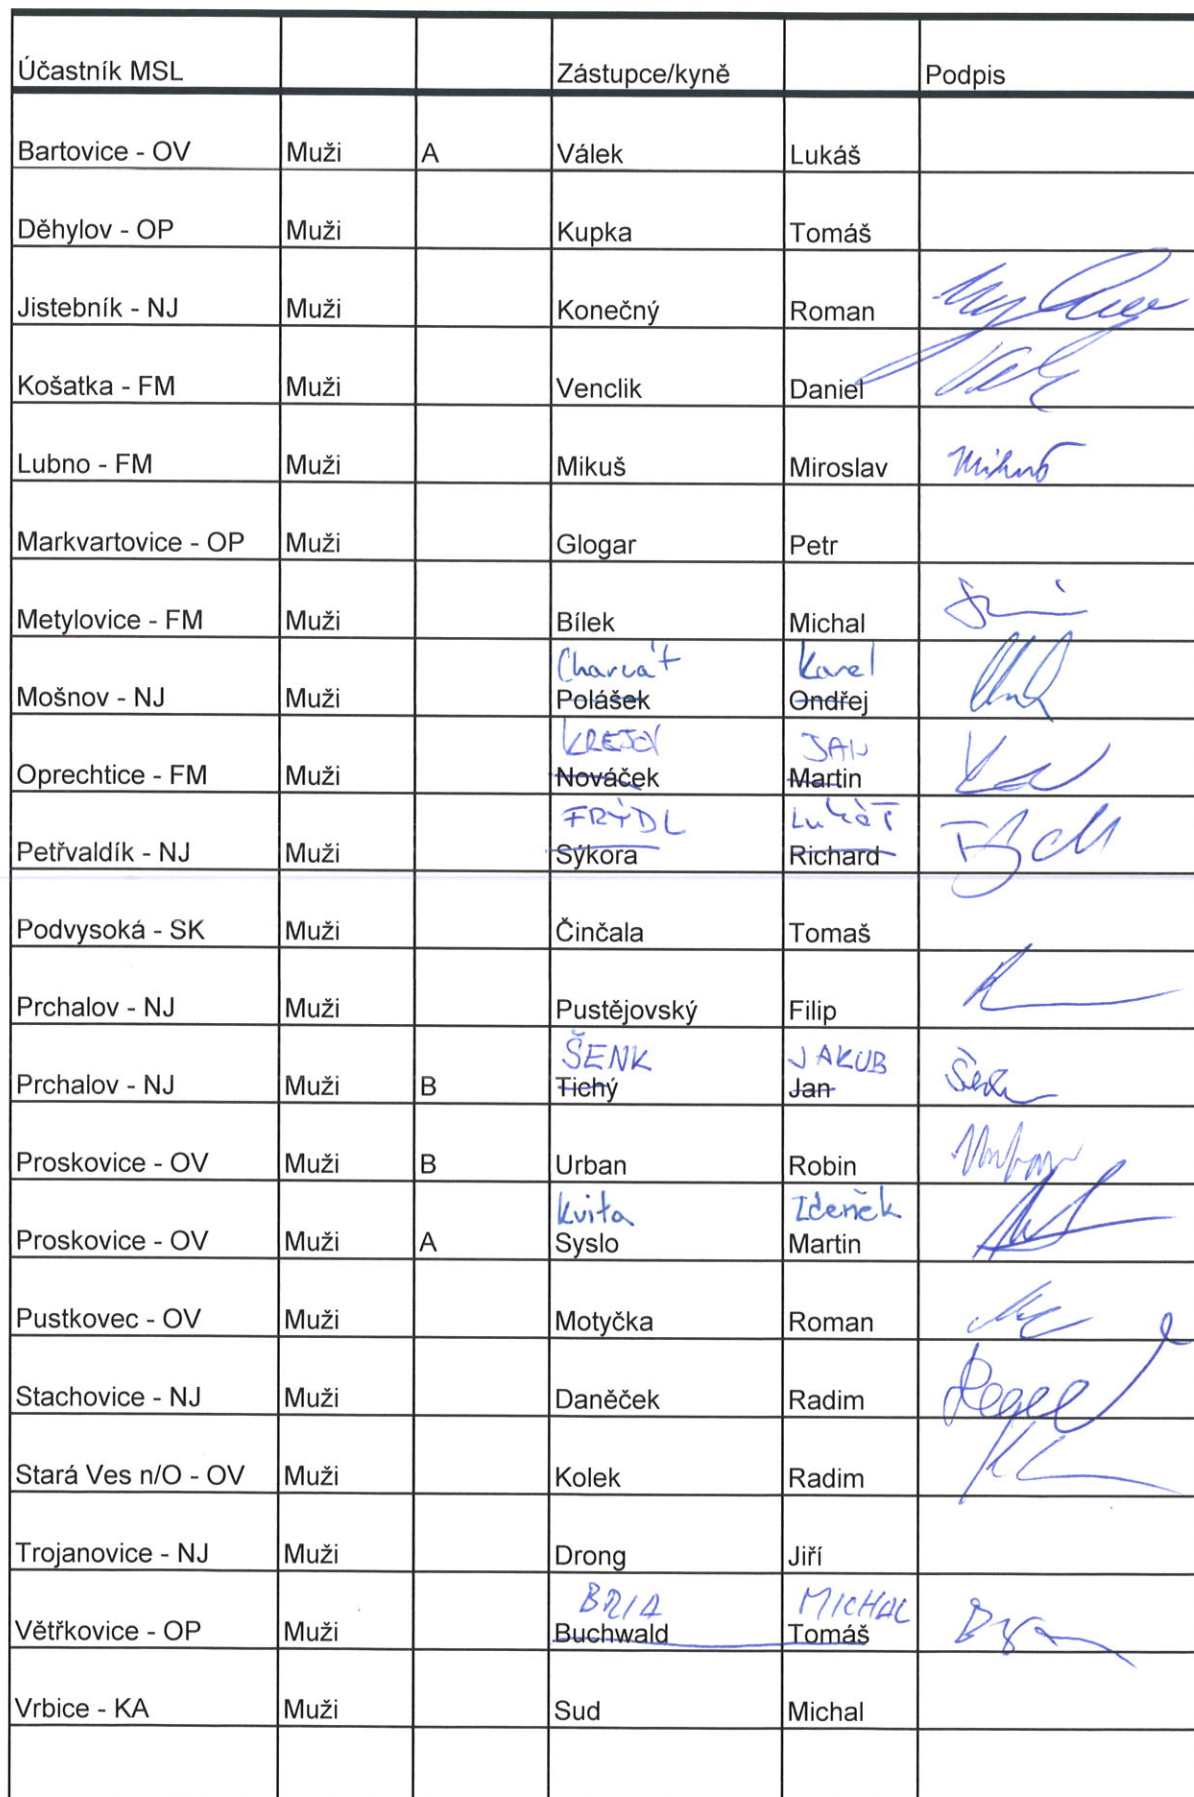 Účastník MSL Zástupce/kyně Podpis
Bartovice - OV Muži A Válek Lukáš
Děhylov - OP Muži Kupka Tomáš
Jistebník - NJ Muži Konečný Roman
Košatka - FM Muži Venclik Daniel
Lubno - FM Muži Mikuš Miroslav Mikuš
Markvartovice - OP Muži Glogar Petr
Metylovice - FM Muži Bílek Michal
Charvát Karel
Mošnov - NJ Muži Polášek Ondřej
KREJČÍ JAN
Oprechtice - FM Muži Nováček Martin
FRÝDL Lukáš
Petřvaldík - NJ Muži Sýkora Richard
Podvysoká - SK Muži Činčala Tomaš
Prchalov - NJ Muži Pustějovský Filip
ŠENK JAKUB
Prchalov - NJ Muži B Tichý Jan
Proskovice - OV Muži B Urban Robin Urban
Kvita Zdeněk
Proskovice - OV Muži A Syslo Martin
Pustkovec - OV Muži Motyčka Roman
Stachovice - NJ Muži Daněček Radim
Stará Ves n/O - OV Muži Kolek Radim
Trojanovice - NJ Muži Drong Jiří
BRIA MICHAL
Větřkovice - OP Muži Buchwald Tomáš
Vrbice - KA Muži Sud Michal